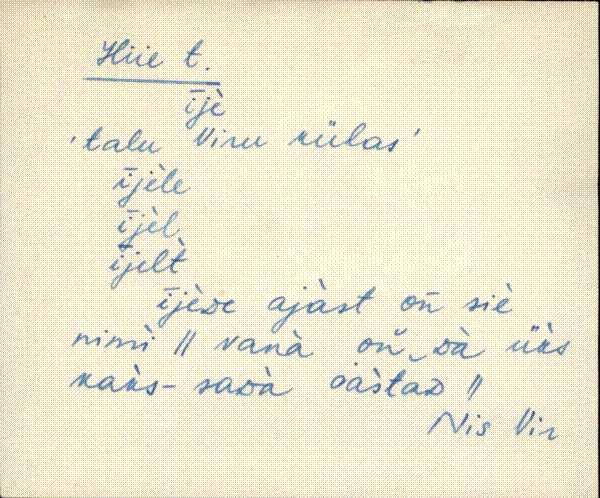 Hiie t.
ījè
'talu Viru külas'
ījèle
ījèl
ījelt̀
ījède ajàst on̄ siè
nimì // vanà on̆ ‿dà üks
kaks- sadà aàstad //
Nis Vir